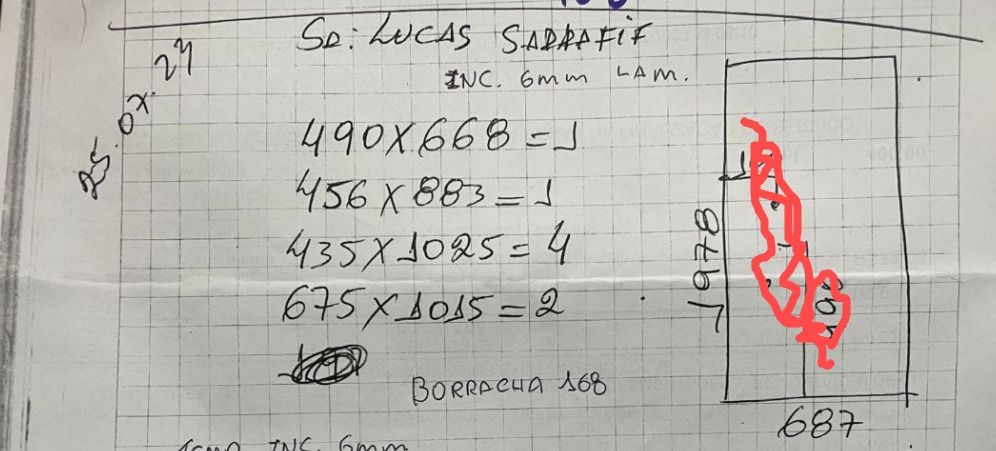 25.0X.24
SR: LUCAS SARRAFIF
INC. 6mm LAM.
490X668=1
456X883=1
435X1025=4
675X1015=2
BORRACHA 168
1978
687
INC. 6mm